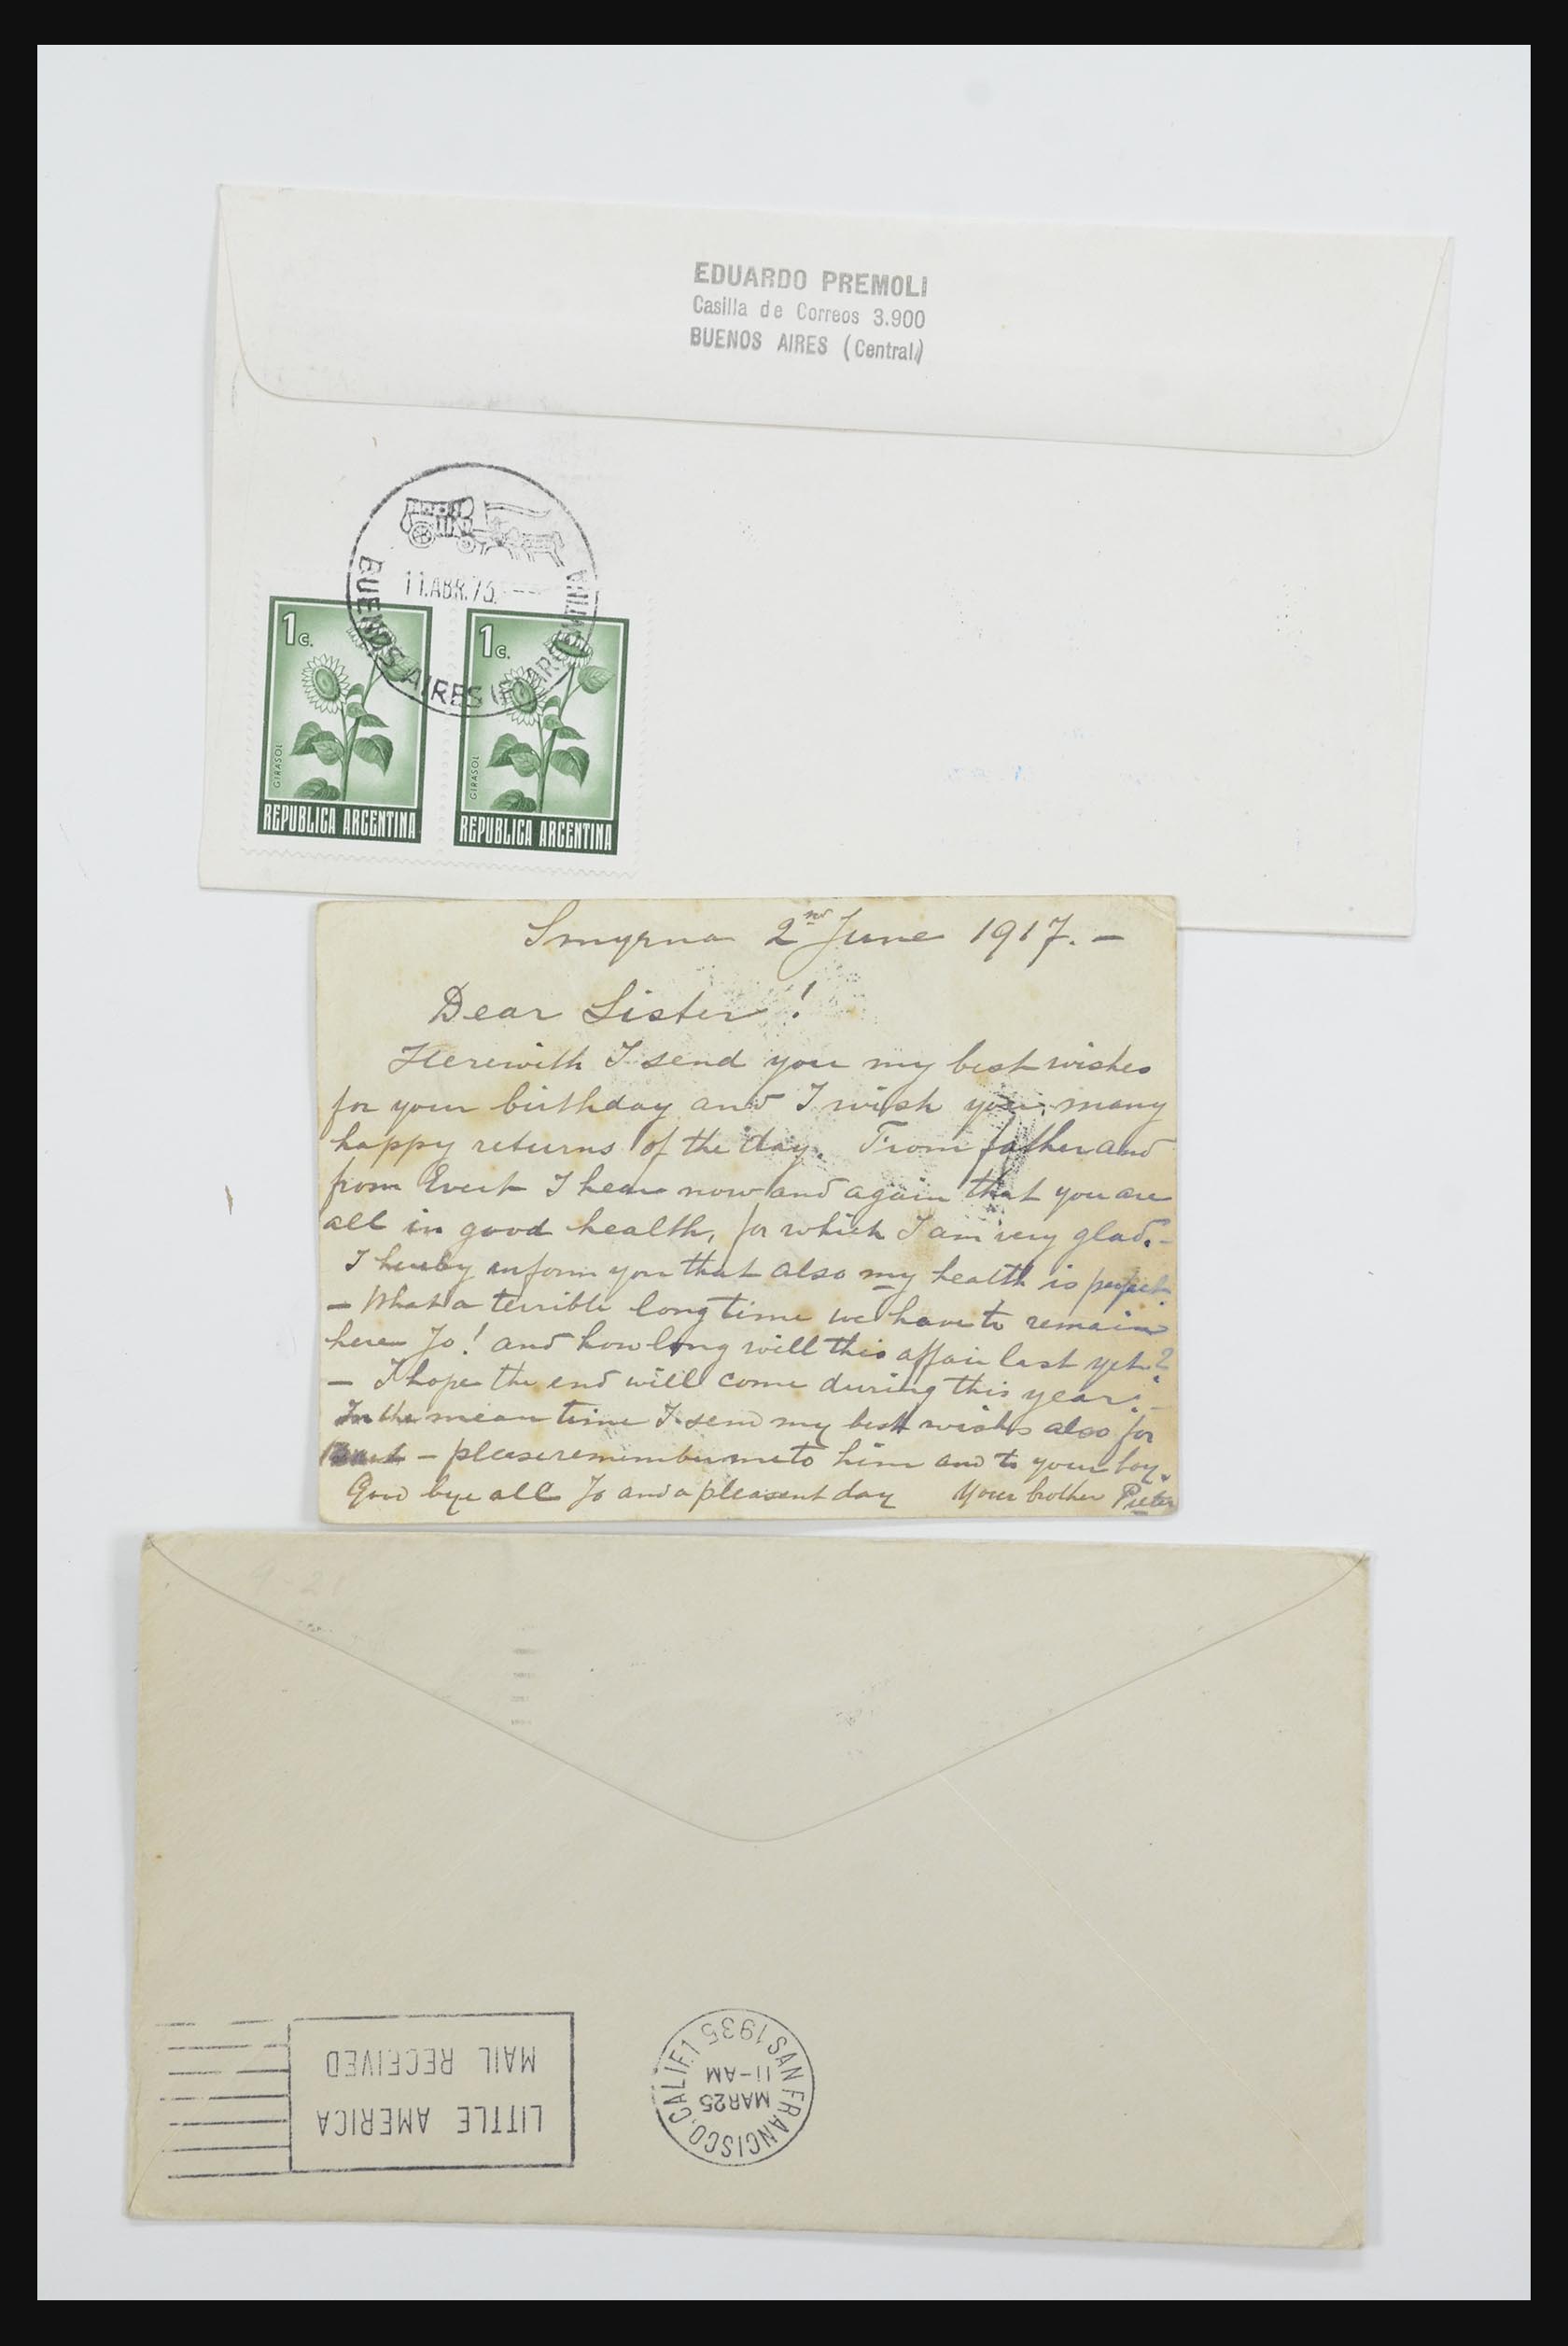 EDUARDO PREMOLI
Casilla de Correos 3.900
BUENOS AIRES (Central)
11.ABR.73.
BUENOS AIRES
1c.
GIRASOL
REPUBLICA ARGENTINA
1c.
GIRASOL
REPUBLICA ARGENTINA
Smyrna 2nd June 1917. —
Dear Sister!
Herewith I send you my best wishes
for your birthday and I wish you many
happy returns of the day. From father and
from Evert I hear now and again that you are
all in good health, for which I am very glad. —
I hereby inform you that also my health is perfect
— What a terrible long time we have to remain
here Jo! and how long will this affair last yet?
— I hope the end will come during this year. —
In the mean time I send my best wishes also for
— please remember me to him and to your boy.
Good bye all Jo and a pleasent day Your brother Pieter
9-21
LITTLE AMERICA
MAIL RECEIVED
SAN FRANCISCO, CALIF. 1
MAR 25
11-AM
1935